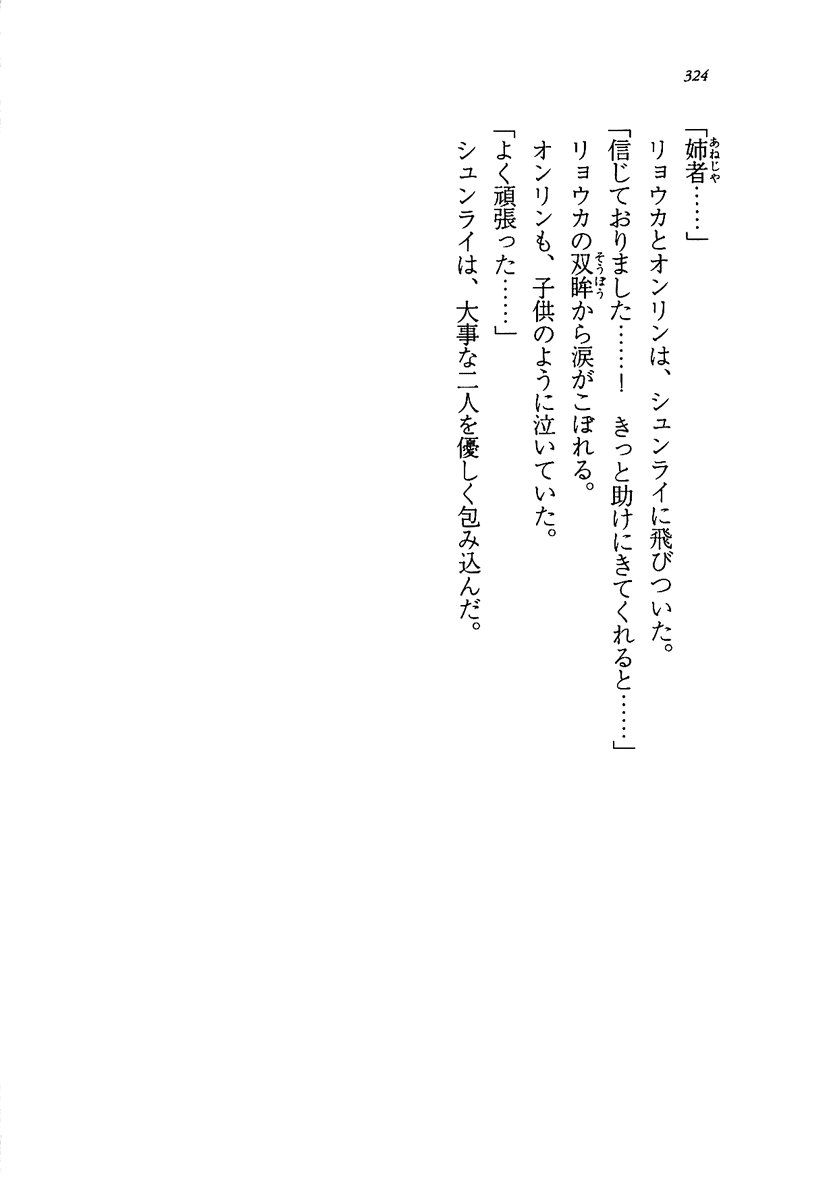 324
「姉者……」
リョウカとオンリンは、シュンライに飛びついた。
「信じておりました……！　きっと助けにきてくれると……」
リョウカの双眸から涙がこぼれる。
オンリンも、子供のように泣いていた。
「よく頑張った……」
シュンライは、大事な二人を優しく包み込んだ。
あねじゃ
そうぼう